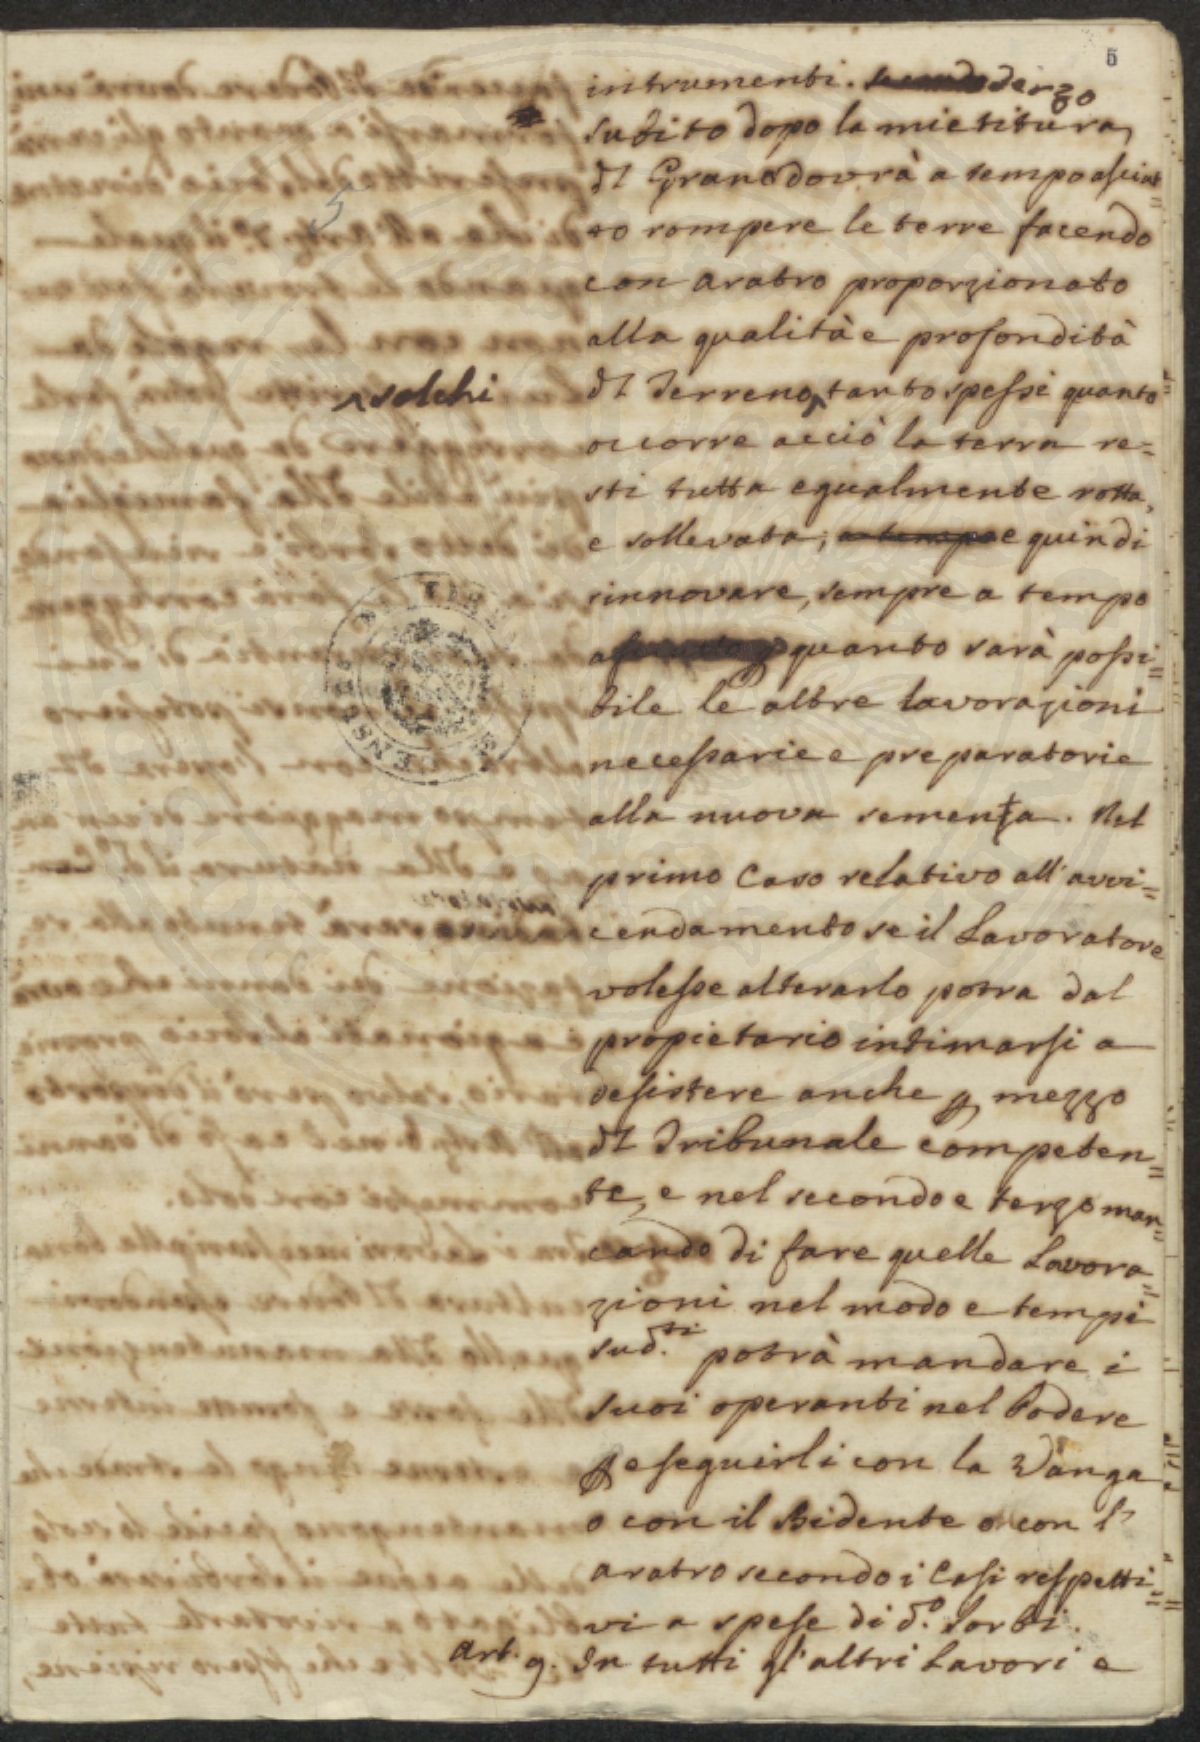 5
intrumenti. terzo
subito dopo la mietitura
dl Grano dovrà a tempo asciut
to rompere le terre facendo
con aratro proporzionato
alla qualità e profondità
dl Terreno, ^ tanto spessi quanto
^ solchi
occorre acciò la terra re=
sti tutta egualmente rotta,
e sollevata; a tempo e quindi
rinnovare, sempre a tempo
quanto sarà possi=
bile le altre lavorazioni
necessarie e preparatorie
alla nuova sementa. Nel
primo Caso relativo all'avvi=
cendamento se il Lavoratore
volesse alterarlo potra dal
propietario intimarsi a
desistere anche p mezzo
dl Tribunale Competen=
te, e nel secondo e terzo man=
cando di fare quelle Lavora=
zioni nel modo e tempi
sud.ti potrà mandare i
suoi operanti nel Podere
p eseguirli con la Vanga
o con il Bidente o con l'
aratro secondo i Casi respetti=
vi a spese di d.o Sorbi.
Art. 9. In tutti gl'altri Lavori e